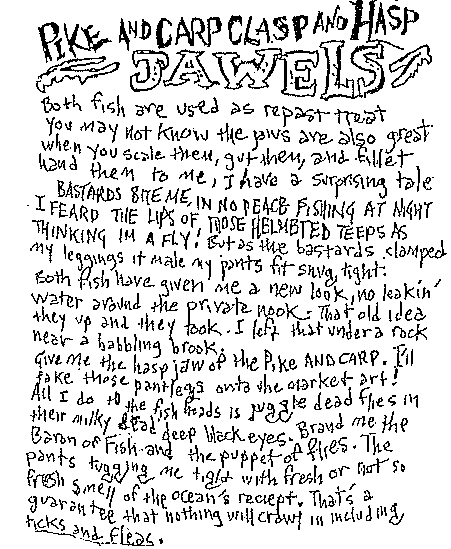 PIKE AND CARP CLASP AND HASP
JAWELS
Both fish are used as repast treat
You may not know the jaws are also great
when you scale them, gut them, and fillet
hand them to me, I have a surprising tale
BASTARDS BITE ME, IN NO PEACE FISHING AT NIGHT
I FEARD THE LIPS OF THOSE HELMETED TEEPS AS
THINKING IM A FLY! But as the bastards clamped
my leggings it made my pants fit snug, tight.
Both fish have given me a new look, no leakin'
water around the private nook. That old idea
they up and they took. I left that under a rock
near a babbling brook.
Give me the hasp jaw of the PIKE AND CARP. I'll
take those pantlegs onta the market art!
All I do to the fish heads is juggle dead flies in
their milky dead deep black eyes. Brand me the
Baron of Fish and the puppet of flies. The
pants tugging me tight with fresh or not so
fresh smell of the ocean's reciept. That's a
guarantee that nothing will crawl in including
ticks and fleas.